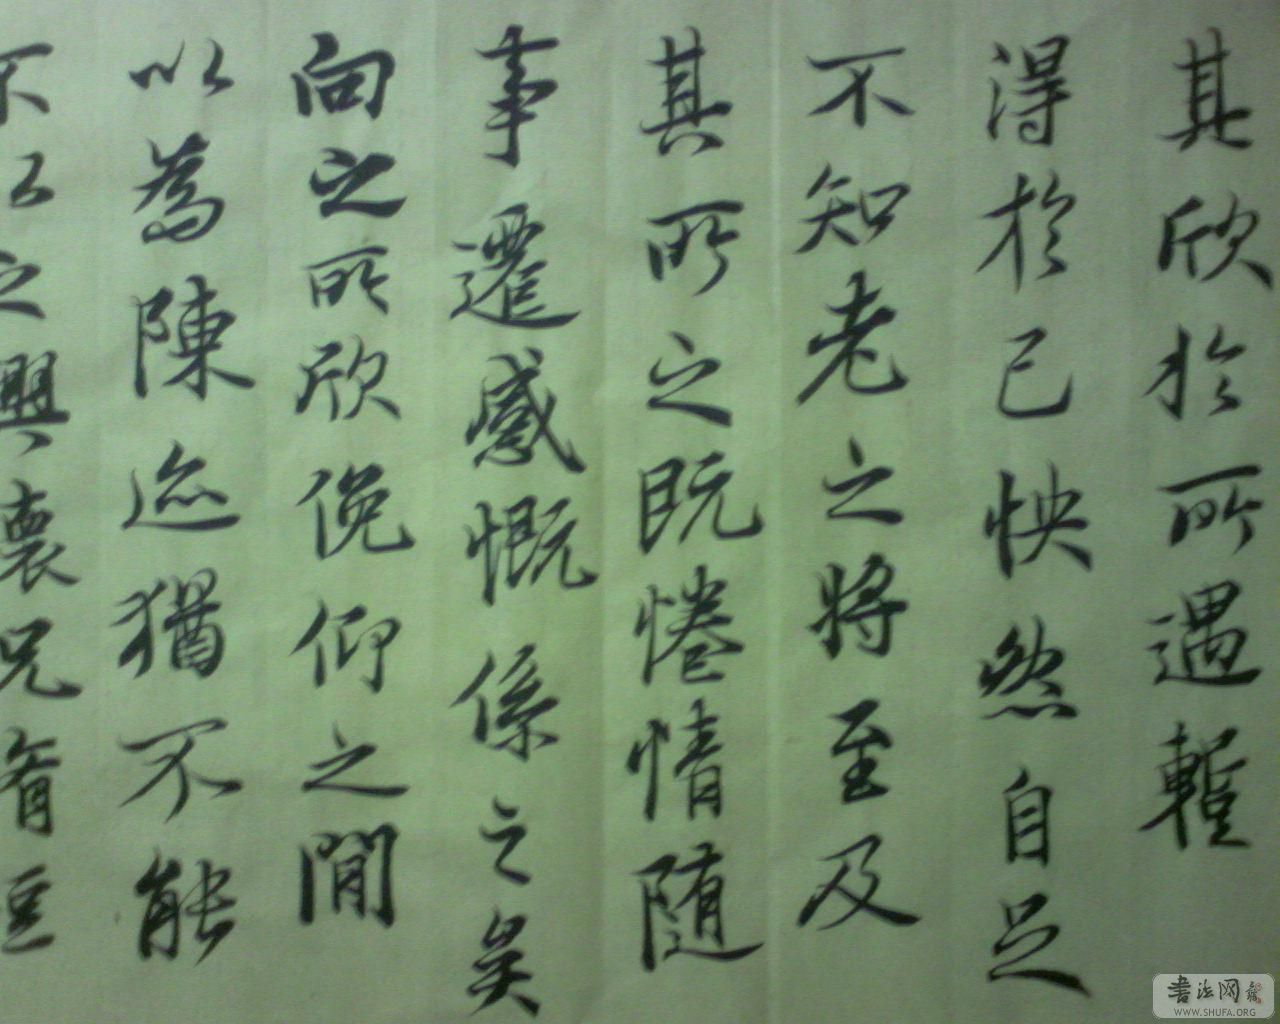 其欣於所遇暫
得於己怏然自足
不知老之將至及
其所之既惓情随
事遷感慨係之矣
向之所欣俛仰之閒
以為陳迹猶不能
不以之興懷況脩短
書法网
WWW.SHUFA.ORG